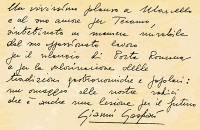 Un vivissimo plauso a Marcello
e al suo amore per Teramo,
in maniera mirabile
dal suo appassionato lavoro
per il rilancio di Porta Romana
e per la valorizzazione delle
tradizioni gastronomiche e popolari:
un omaggio alle nostre radici
che è anche una lezione per il futuro
Gianni Gaspari